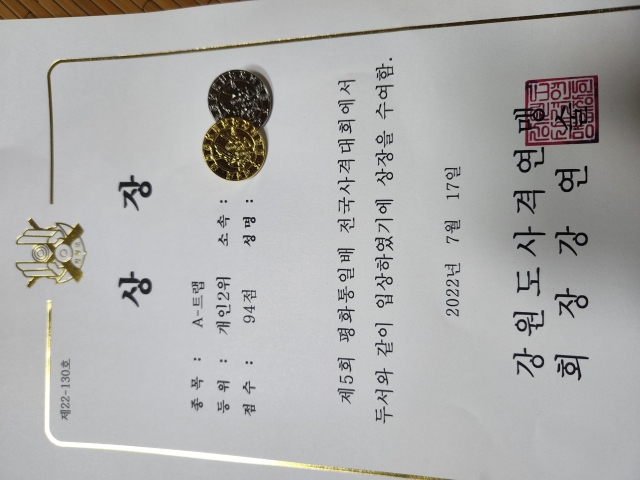 제22-130호
상 장
종목 : A-트랩
등위 : 개인2위
점수 : 94점
소속 :
성명 :
제5회 평화통일배 전국사격대회에서
두서와 같이 입상하였기에 상장을 수여함.
2022년 7월 17일
강원도사격연맹
회장 강연